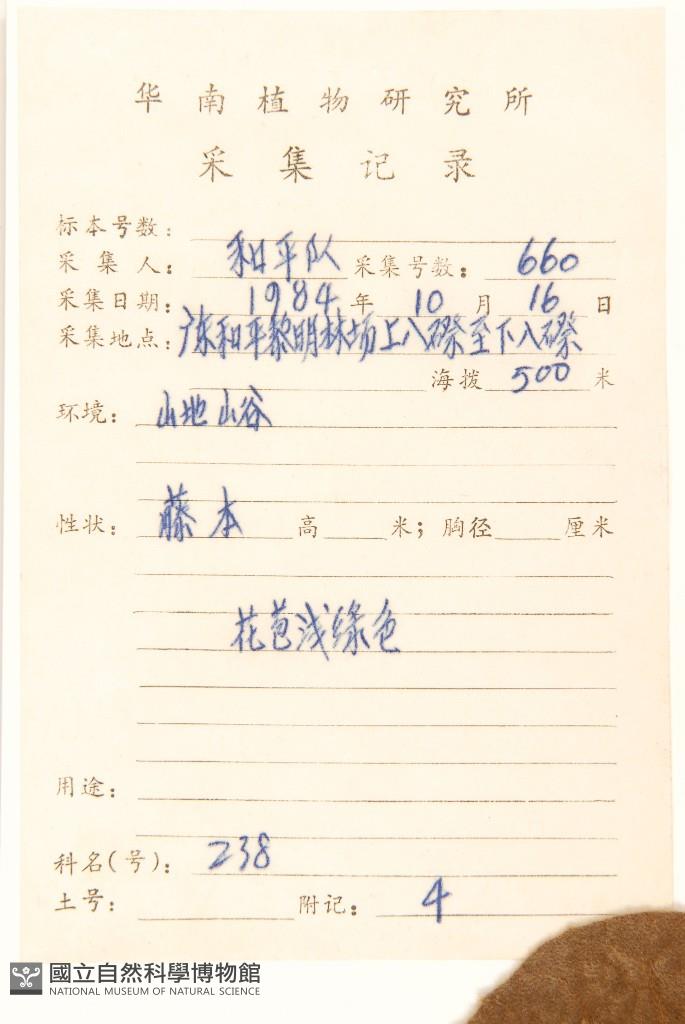 华南植物研究所
采集记录
标本号数：
采集人：和平队 采集号数：660
采集日期：1984年10月16日
采集地点：广东和平黎明林场上八磜至下八磜
海拨500米
环境：山地山谷
性状：藤本 高 米；胸径 厘米
花苞浅绿色
用途：
科名(号)：238
土号： 附记：4
國立自然科學博物館
NATIONAL MUSEUM OF NATURAL SCIENCE